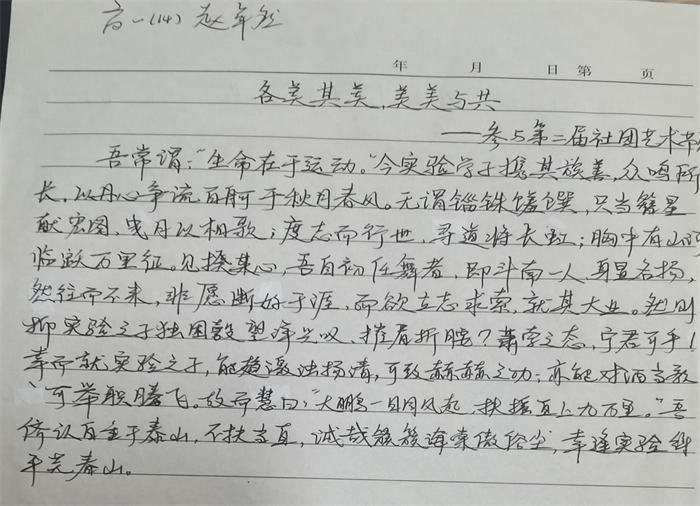 高一(14) 赵
年 月 日 第 页
各美其美,美美与共
——参与第二届社团艺术节
吾常谓:“生命在于运动。”今实验学子携其族善,众鸣所
长,以丹心争流百舸于秋月春风。无谓锱铢馐馔,只当繁星
献宏图,曳月以相歌;度志而行世,寻道将长虹;胸中有山河
临跃万里征。见揆其心,吾自初任舞者,即斗南一人,身显名扬,
然往而不来,非愿断好于涯,而欲立志求索,就其大业。然则
抑实验之子独困 望洋兴叹,摧眉折腰?萧索之态,宁君可乎!
幸而就实验之子,能趋激浊扬清,可致赫赫之功;亦能对酒当歌
、可举职腾飞。故而慧曰:“大鹏一日同风起,扶摇直上九万里。”吾
侪认自重于泰山,不扶当直,诚哉 海棠傲俗尘,幸逢实验
平芜春山。